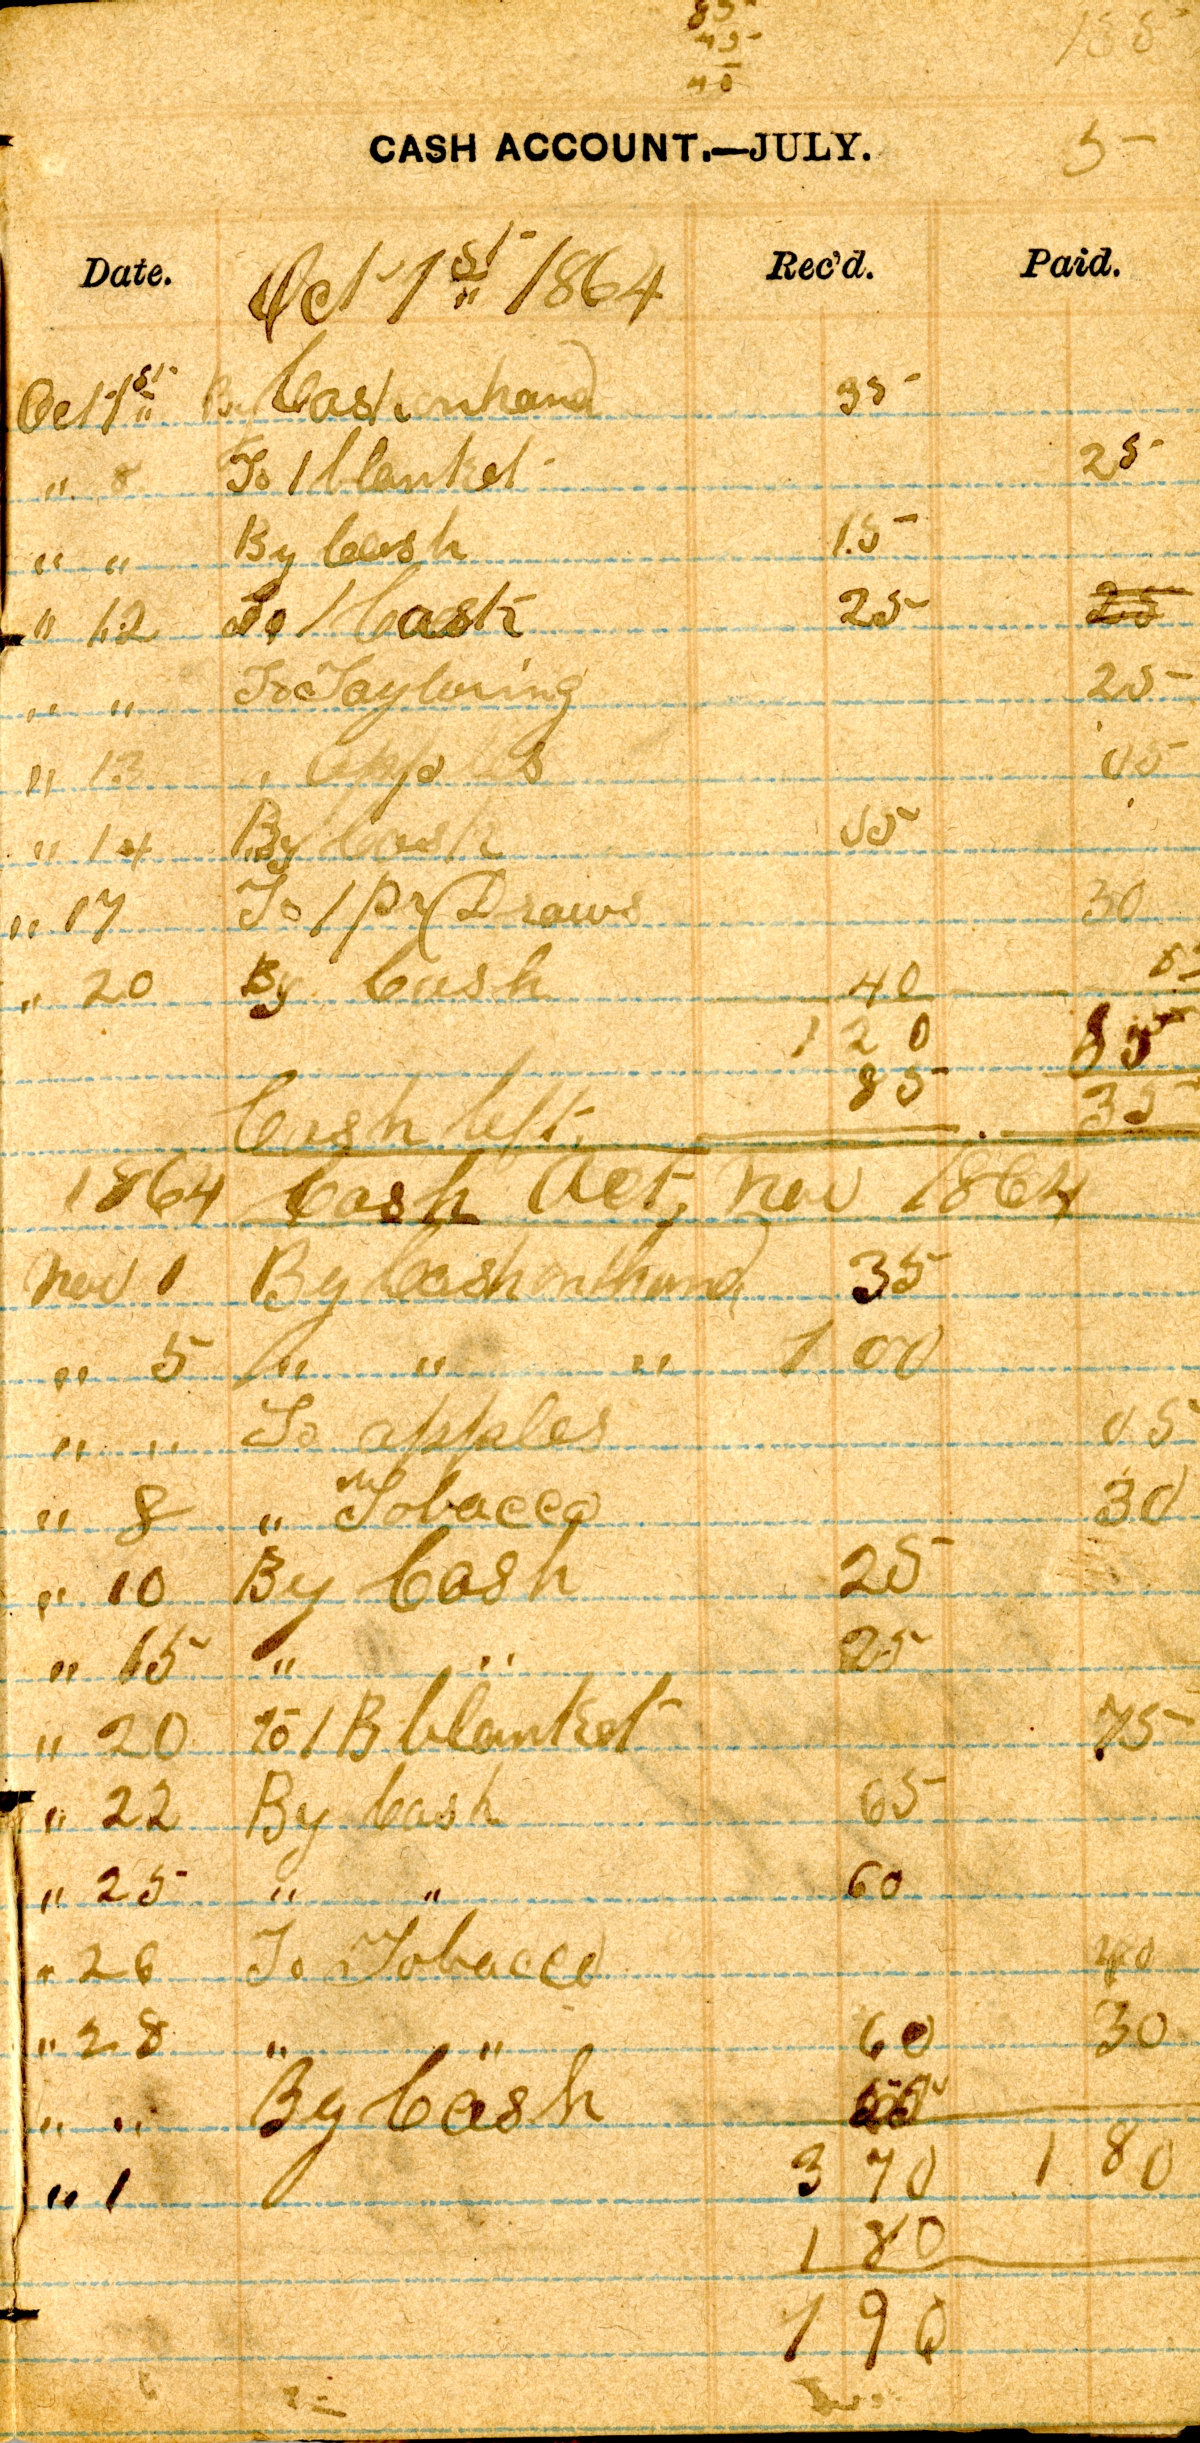 85
45
40
185
CASH ACCOUNT.—JULY.
5
Date. Oct 1st 1864 Rec'd. Paid.
Oct 1st By Cash on hand 35
" 8 To 1 blanket 25
" " By Cash 15
" 12 To 1 Cash 25 25
" " To Tayloring 25
" 13 " apples 05
" 14 By Cash 05
" 17 To 1 pr Draws 30
" 20 By Cash 40
120 85
Cash left. 85 35
1864 Cash Act, Nov 1864
Nov 1 By Cash on hand 35
" 5 " " " 1 00
" " To apples 05
" 8 " Tobacco 30
" 10 By Cash 25
" 15 " " 25
" 20 to 1 B blanket 75
" 22 By Cash 65
" 25 " " 60
" 26 To Tobacco 40
" 28 " " 60 30
" " By Cash
" 1 3 70 1 80
1 80
1 90